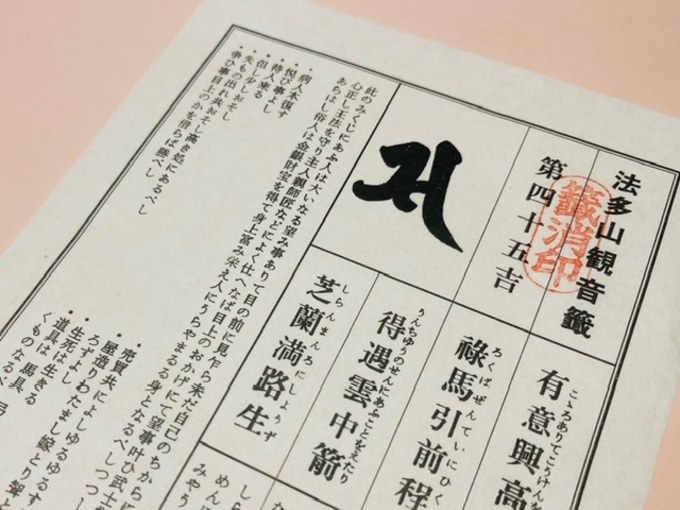 法多山観音籤
第四十五吉
籤消印
有意興高
こゝろありてこうけんを
祿馬引前程
ろくばぜんていにひく
得遇雲中箭
うんちゆうのせんにあふことをえたり
芝蘭満路生
しらんまんろにしょうず
此のみくじにあふ人は大いなる望み事ありて目の前に見乍ら未だ自己のちから
心正し王法を守り主人親師匠などによく仕へなば目上のおかげにて望事叶ひ武士
あらはし俗人は金銀財宝を得て身上富み栄え人にうらやまるゝ身となるべしつつし
・病人本復す
・悦び事よし
・待人来る
・但し少しおそし
・失もの出れ共おそし高き処にあるべし
・争ひ事目上のかを借らば勝べし
・売買共によしゆるゆる
・屋造りわたまし嫁とり聟と
ろずよし
・生死は生きる
・道具は馬具
くものなるべ